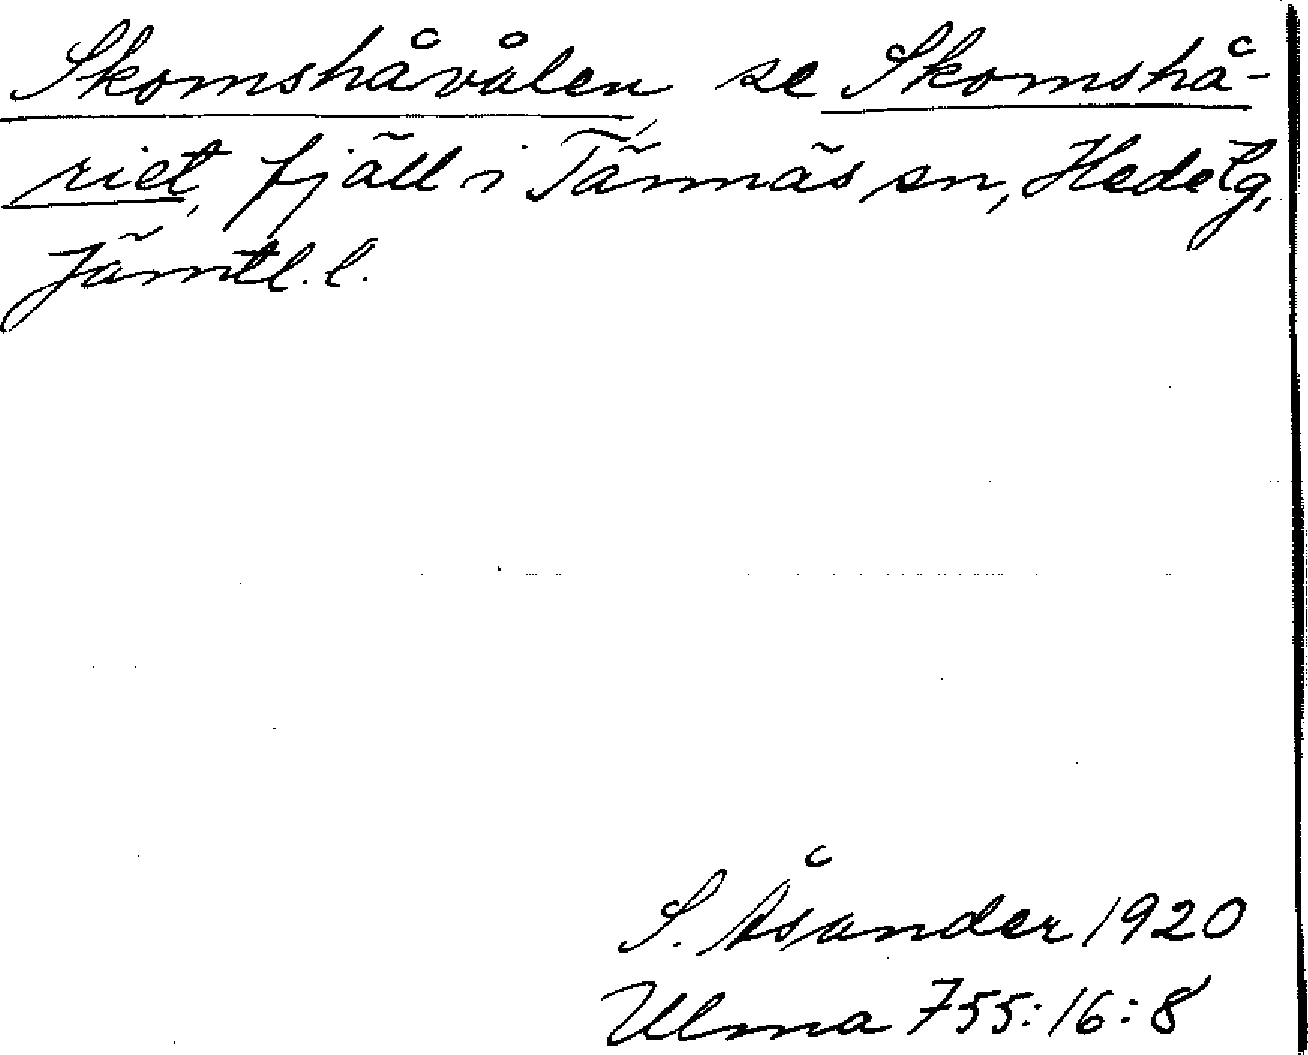 Skomshåvålen, se Skomshå-
riet, fjäll i Tännäs sn, Hede tg,
Jämtl. l.
S. Åsander 1920
Ulma 755:16:8